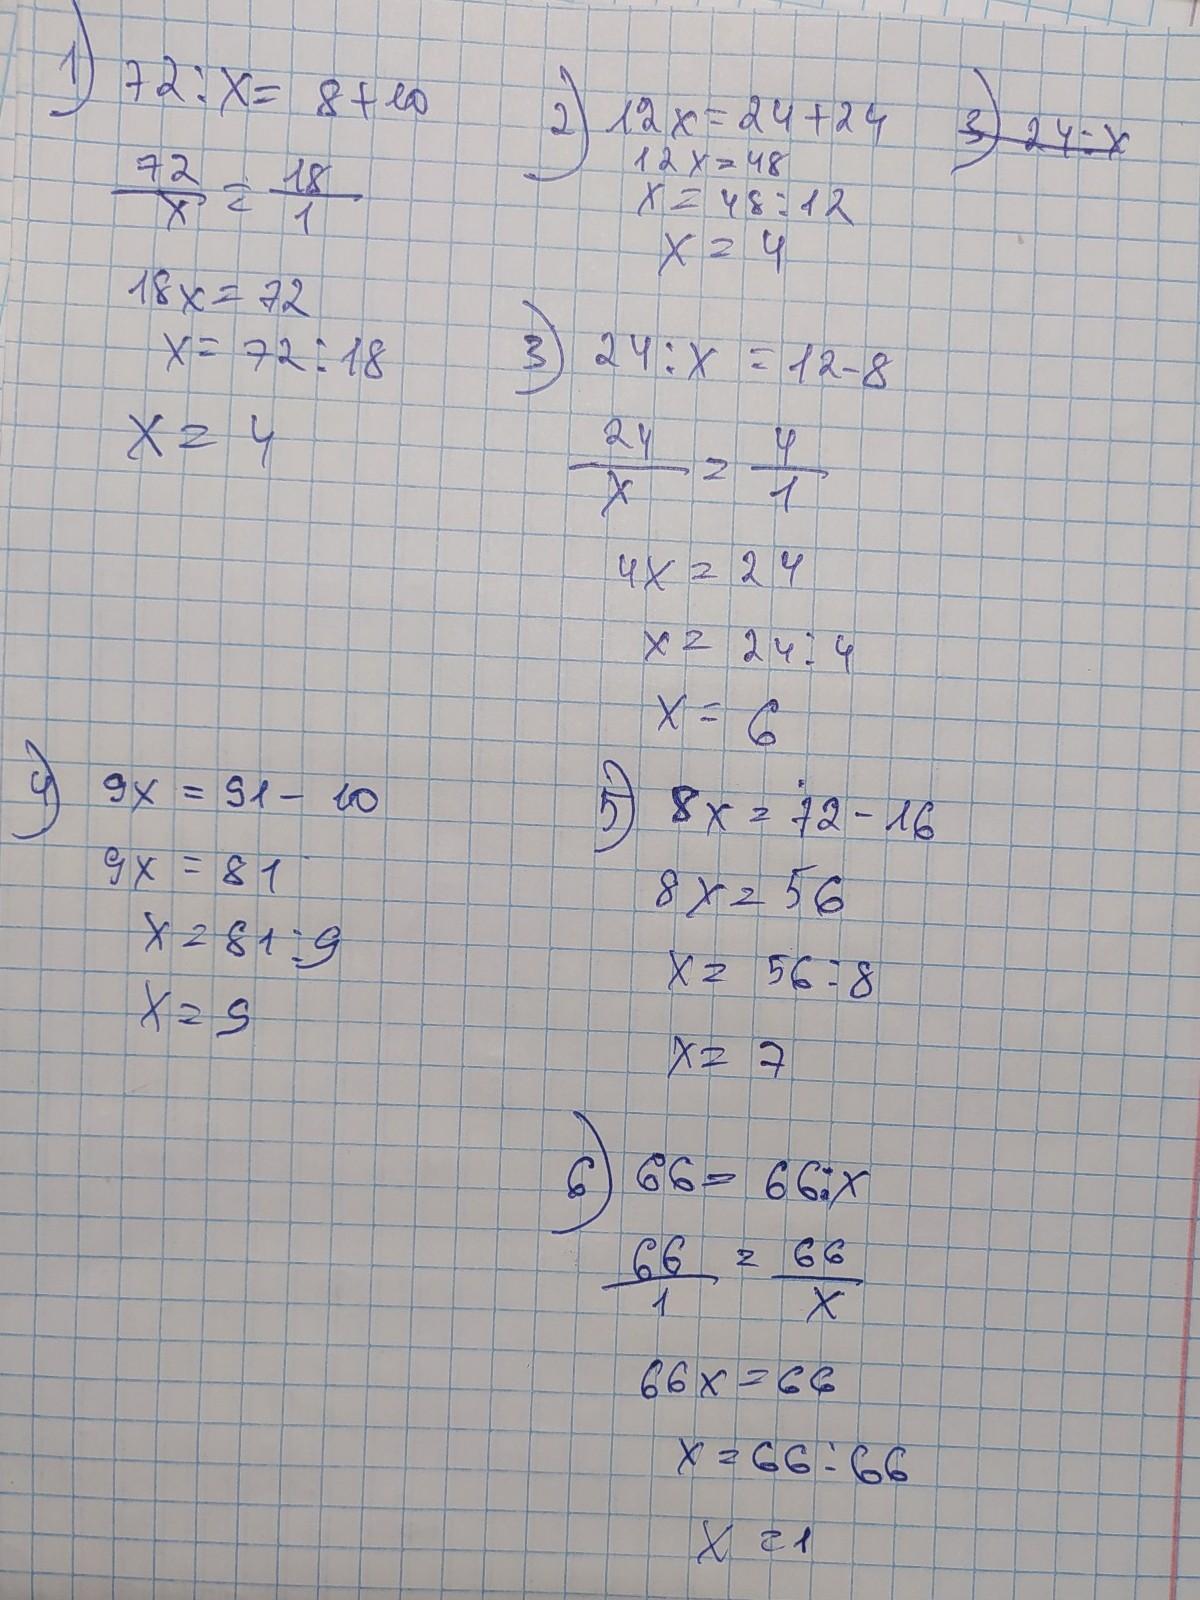 1) 72:x= 8+10
72/x = 18/1
18x=72
x= 72:18
x= 4
2) 12x=24+24
12x=48
x=48:12
x=4
3) 24:x
3) 24:x =12-8
24/x = 4/1
4x=24
x= 24:4
x= 6
4) 9x=91-10
9x=81
x=81:9
x=9
5) 8x=72-16
8x=56
x= 56:8
x= 7
6) 66= 66:x
66/1 = 66/x
66x=66
x=66:66
x=1